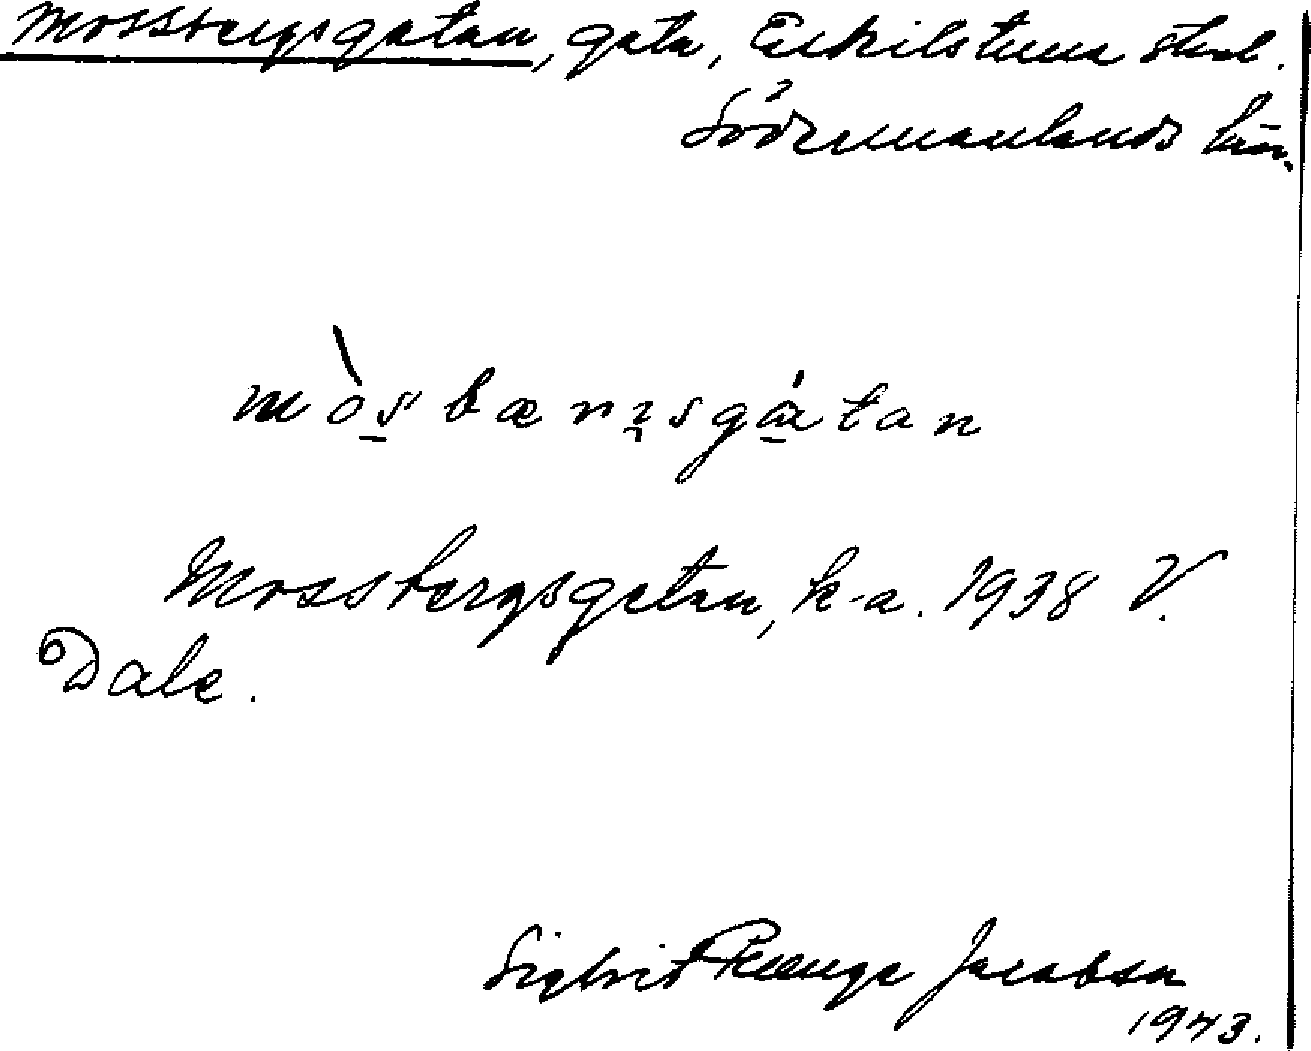 Mossbergsgatan, gata, Eskilstuna stad.
Södermanlands län.
mòs̱bærɪsgá̱tan
Mossbergsgatan, k-a. 1938 V.
Dale.
Sigbrit Plænge Jacobson
1943.